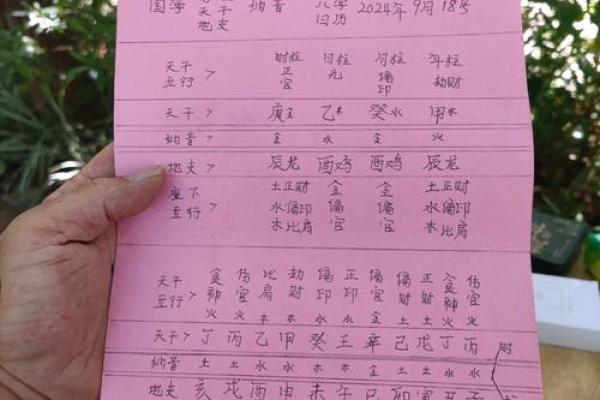 国海 天干 纳音 八字 2024年9月18号
地支 日历
天干 五行 > 时柱 正官 日柱 元 月柱 偏印 年柱 劫财
天干 > 庚金 乙木 癸水 甲木
纳音 > 金 水 金 火
地支 > 辰龙 酉鸡 酉鸡 辰龙
座下 五行 > 土正财 金 金 土正财
水偏印 偏 偏 水偏印
木比肩 官 官 木比肩
天干 五行 > 食神 伤官 比肩 劫财 偏印 正印 偏官 偏财 正财 食神 伤官
火 火 木 木 水 水 金 土 土 火 火
天干 > 丁 丙 乙 甲 癸 壬 辛 己 戊 丁 丙 时
纳音 > 土 土 水 水 木 木 金 土 土 水 水
地支 > 亥 戌 酉 申 未 午 巳 卯 寅 丑 子